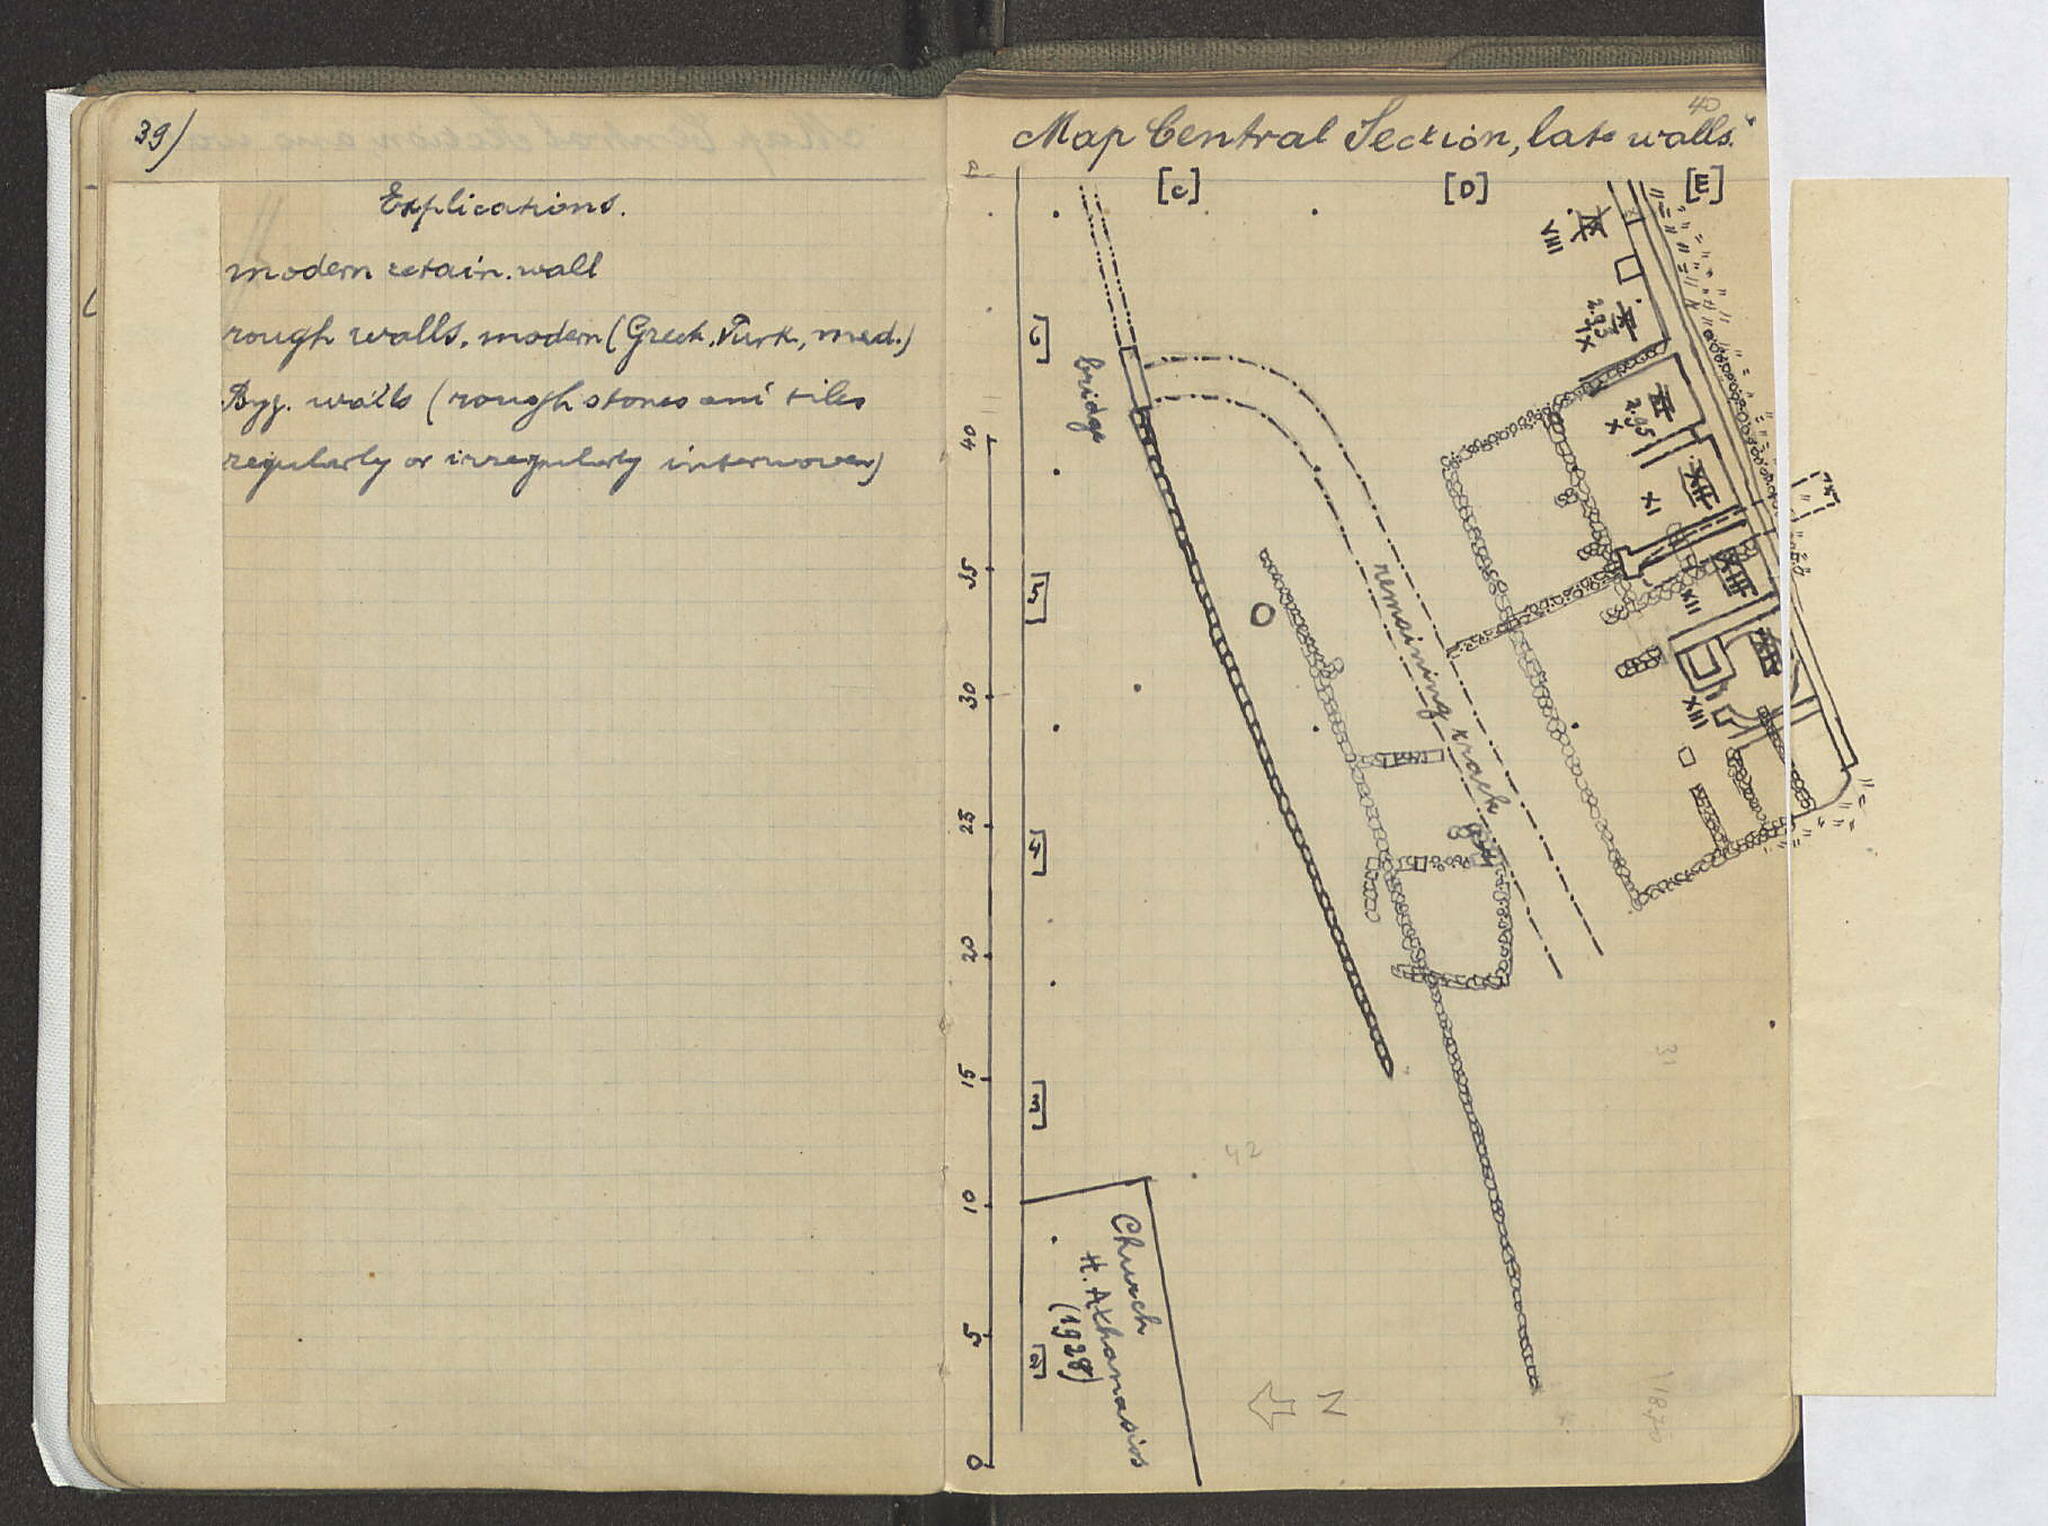 39)
Explications.
modern retain. wall
rough walls, modern (Greek, Turk, med.)
Byz. walls (rough stones and tiles
regularly or irregularly interwoven)
40
Map Central Section, late walls.
[C] [D] [E]
VIII
2.93
IX
2.95
X
XI
XII
XIII
bridge
remaining track
[6]
[5]
[4]
[3]
[2]
40
35
30
25
20
15
10
5
0
31
42
Church
H. Athanasios
(1928)
N